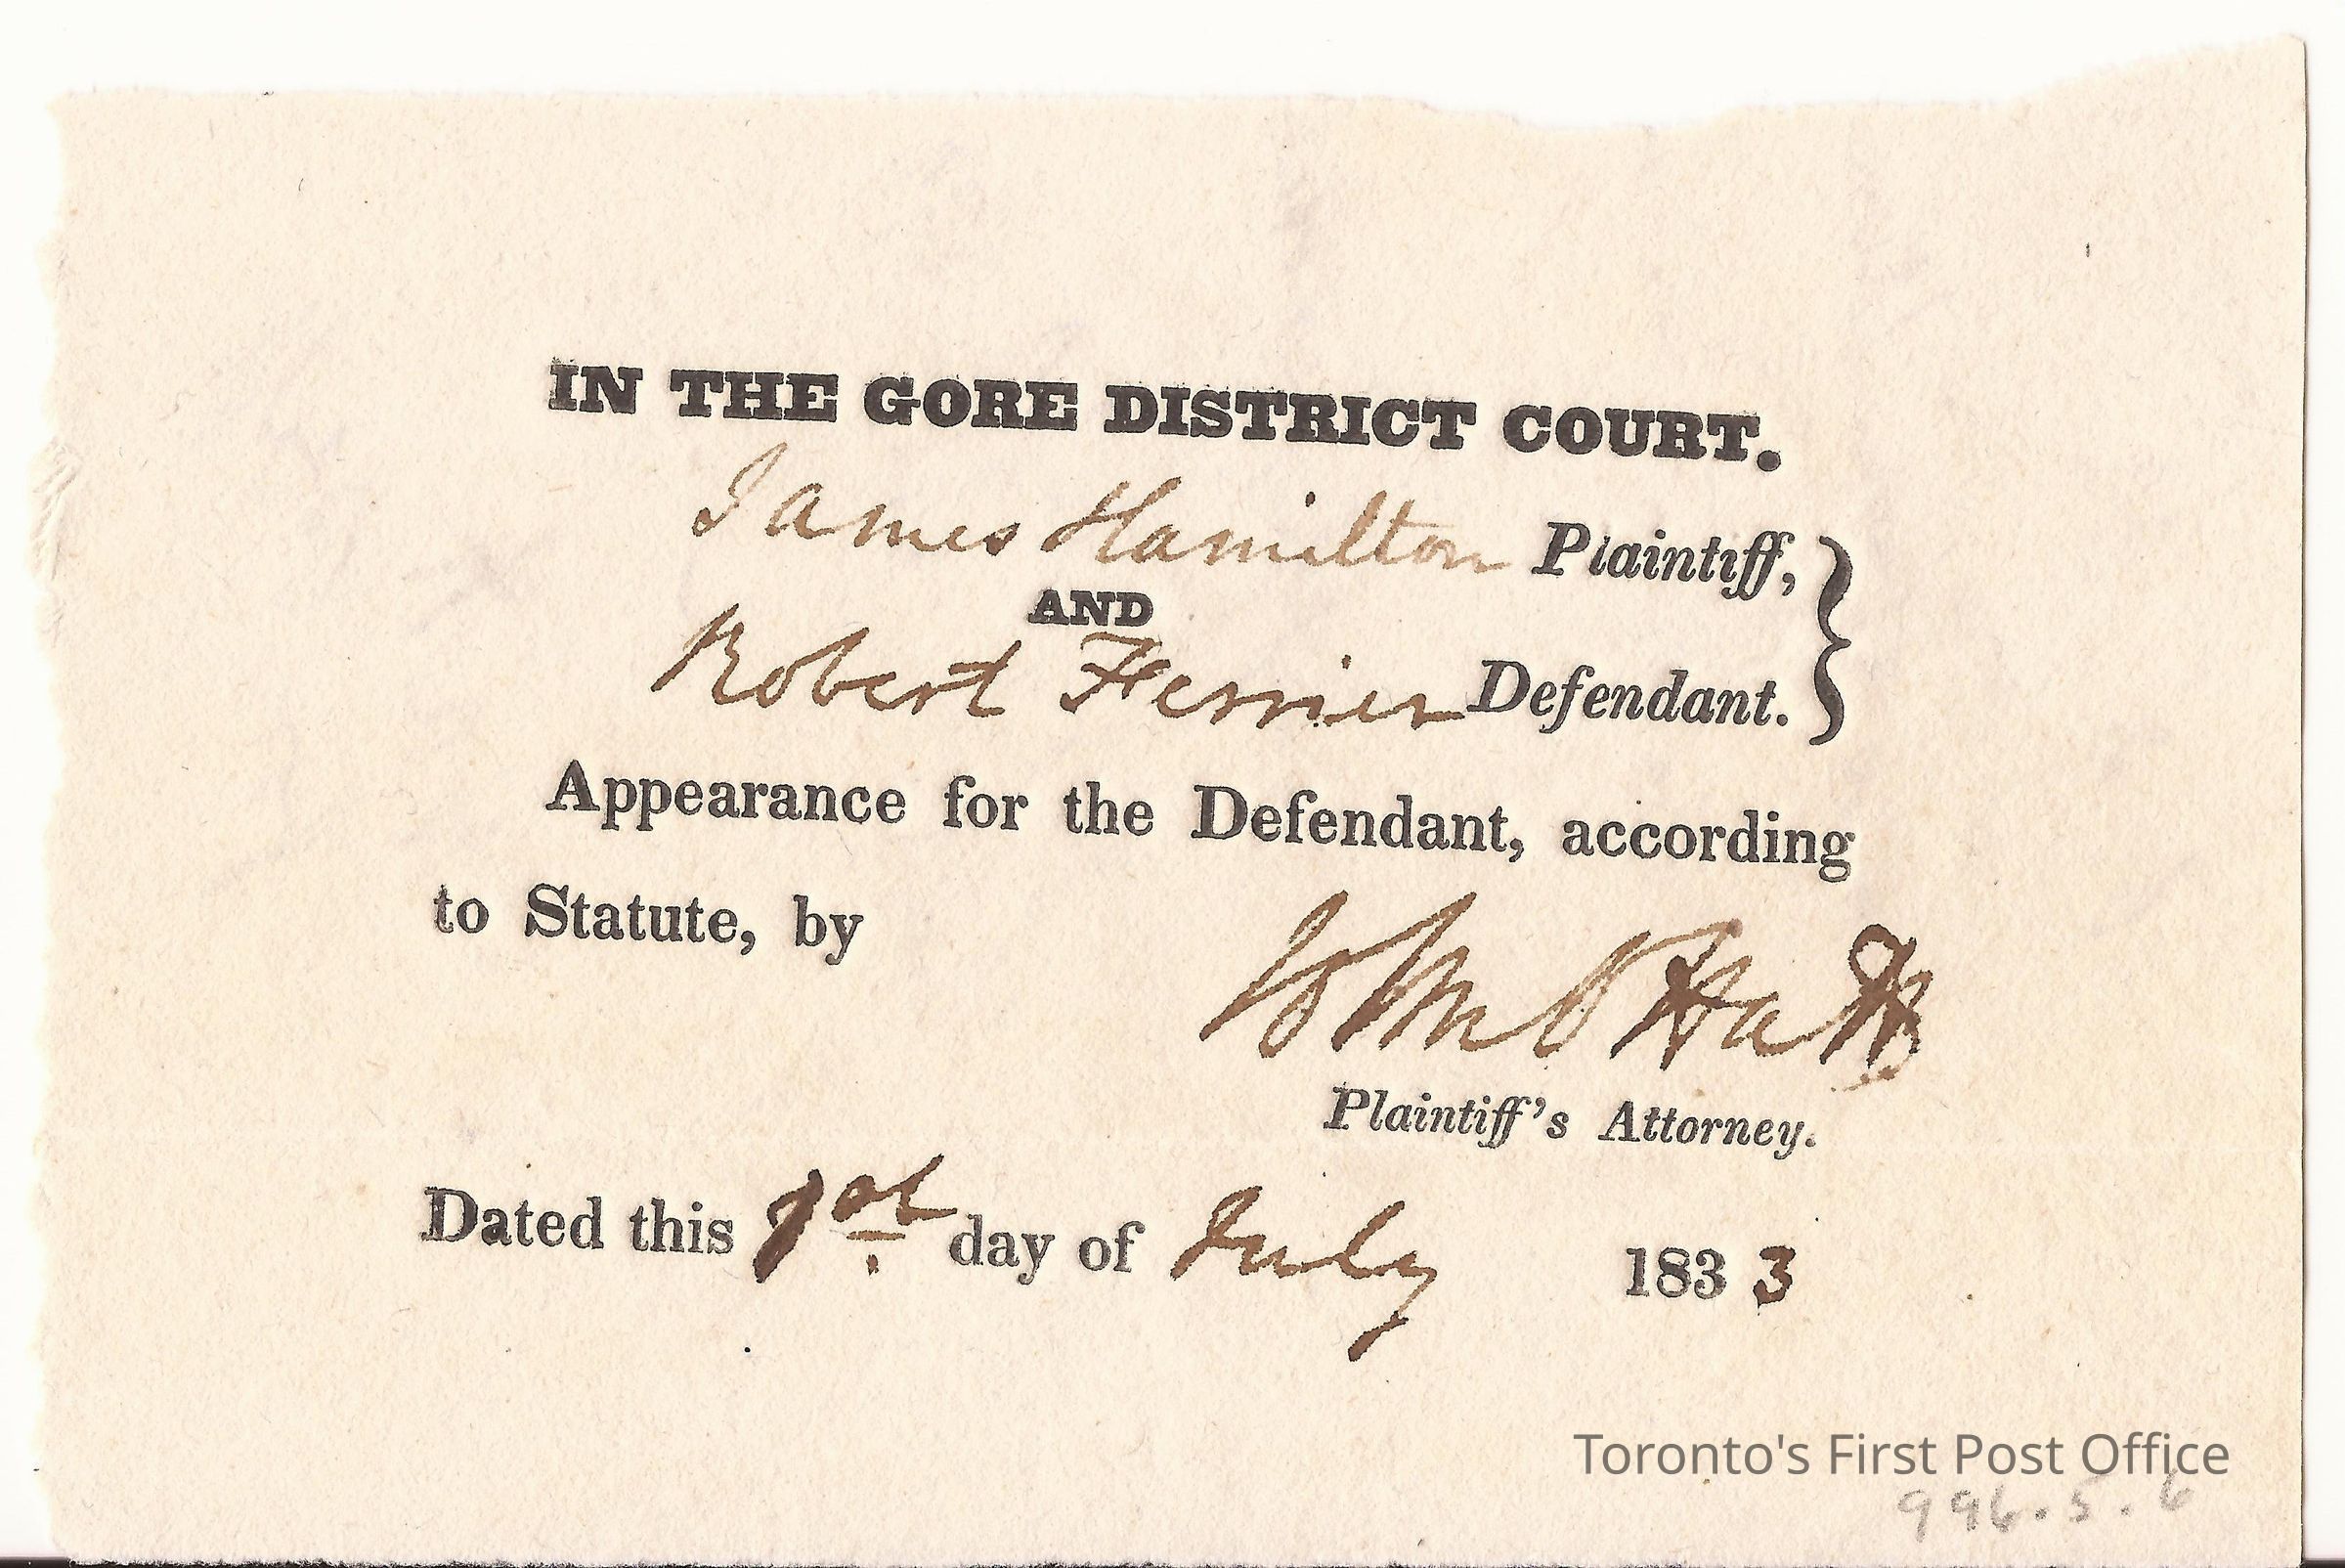 IN THE GORE DISTRICT COURT.
James Hamilton Plaintiff,
AND
Robert Ferrier Defendant.
Appearance for the Defendant, according
to Statute, by
John O Hatt
Plaintiff's Attorney.
Dated this 1st day of July 1833
Toronto's First Post Office
996.5.6